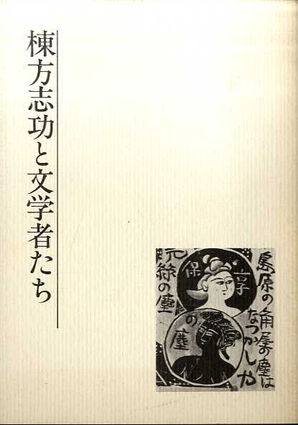 棟方志功と文学者たち
島原の角屋の塵は
なつかしや
享保
の塵
元禄の塵